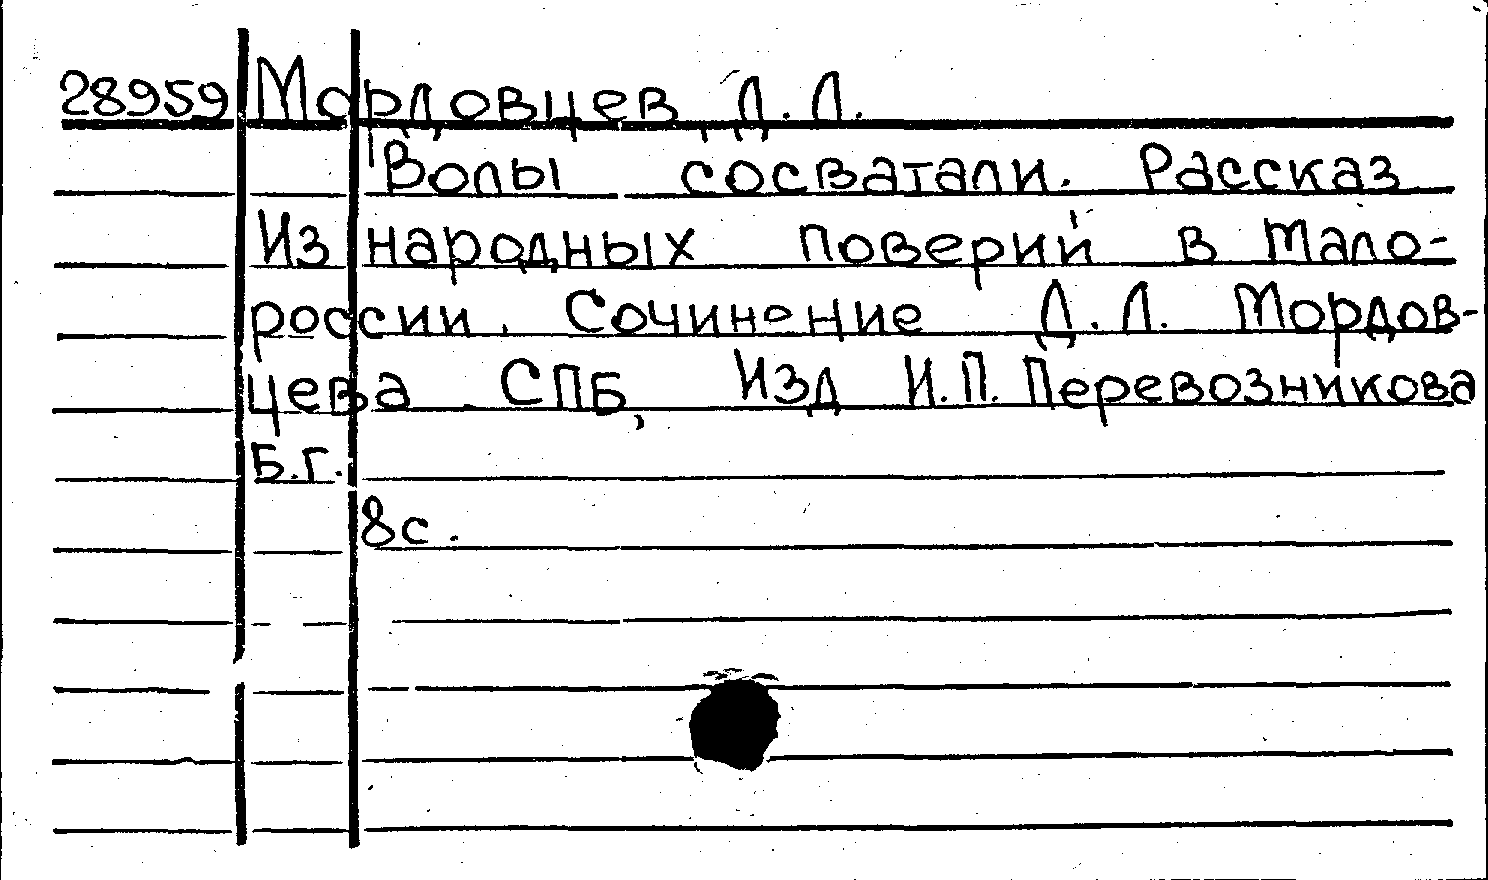 28959 Мордовцев, Д.Л.
Волы сосватали. Рассказ
Из народных поверий в Мало-
россии. Сочинение Д.Л. Мордов-
цева СПБ, Изд И.П. Перевозникова
Б.г.
8с.